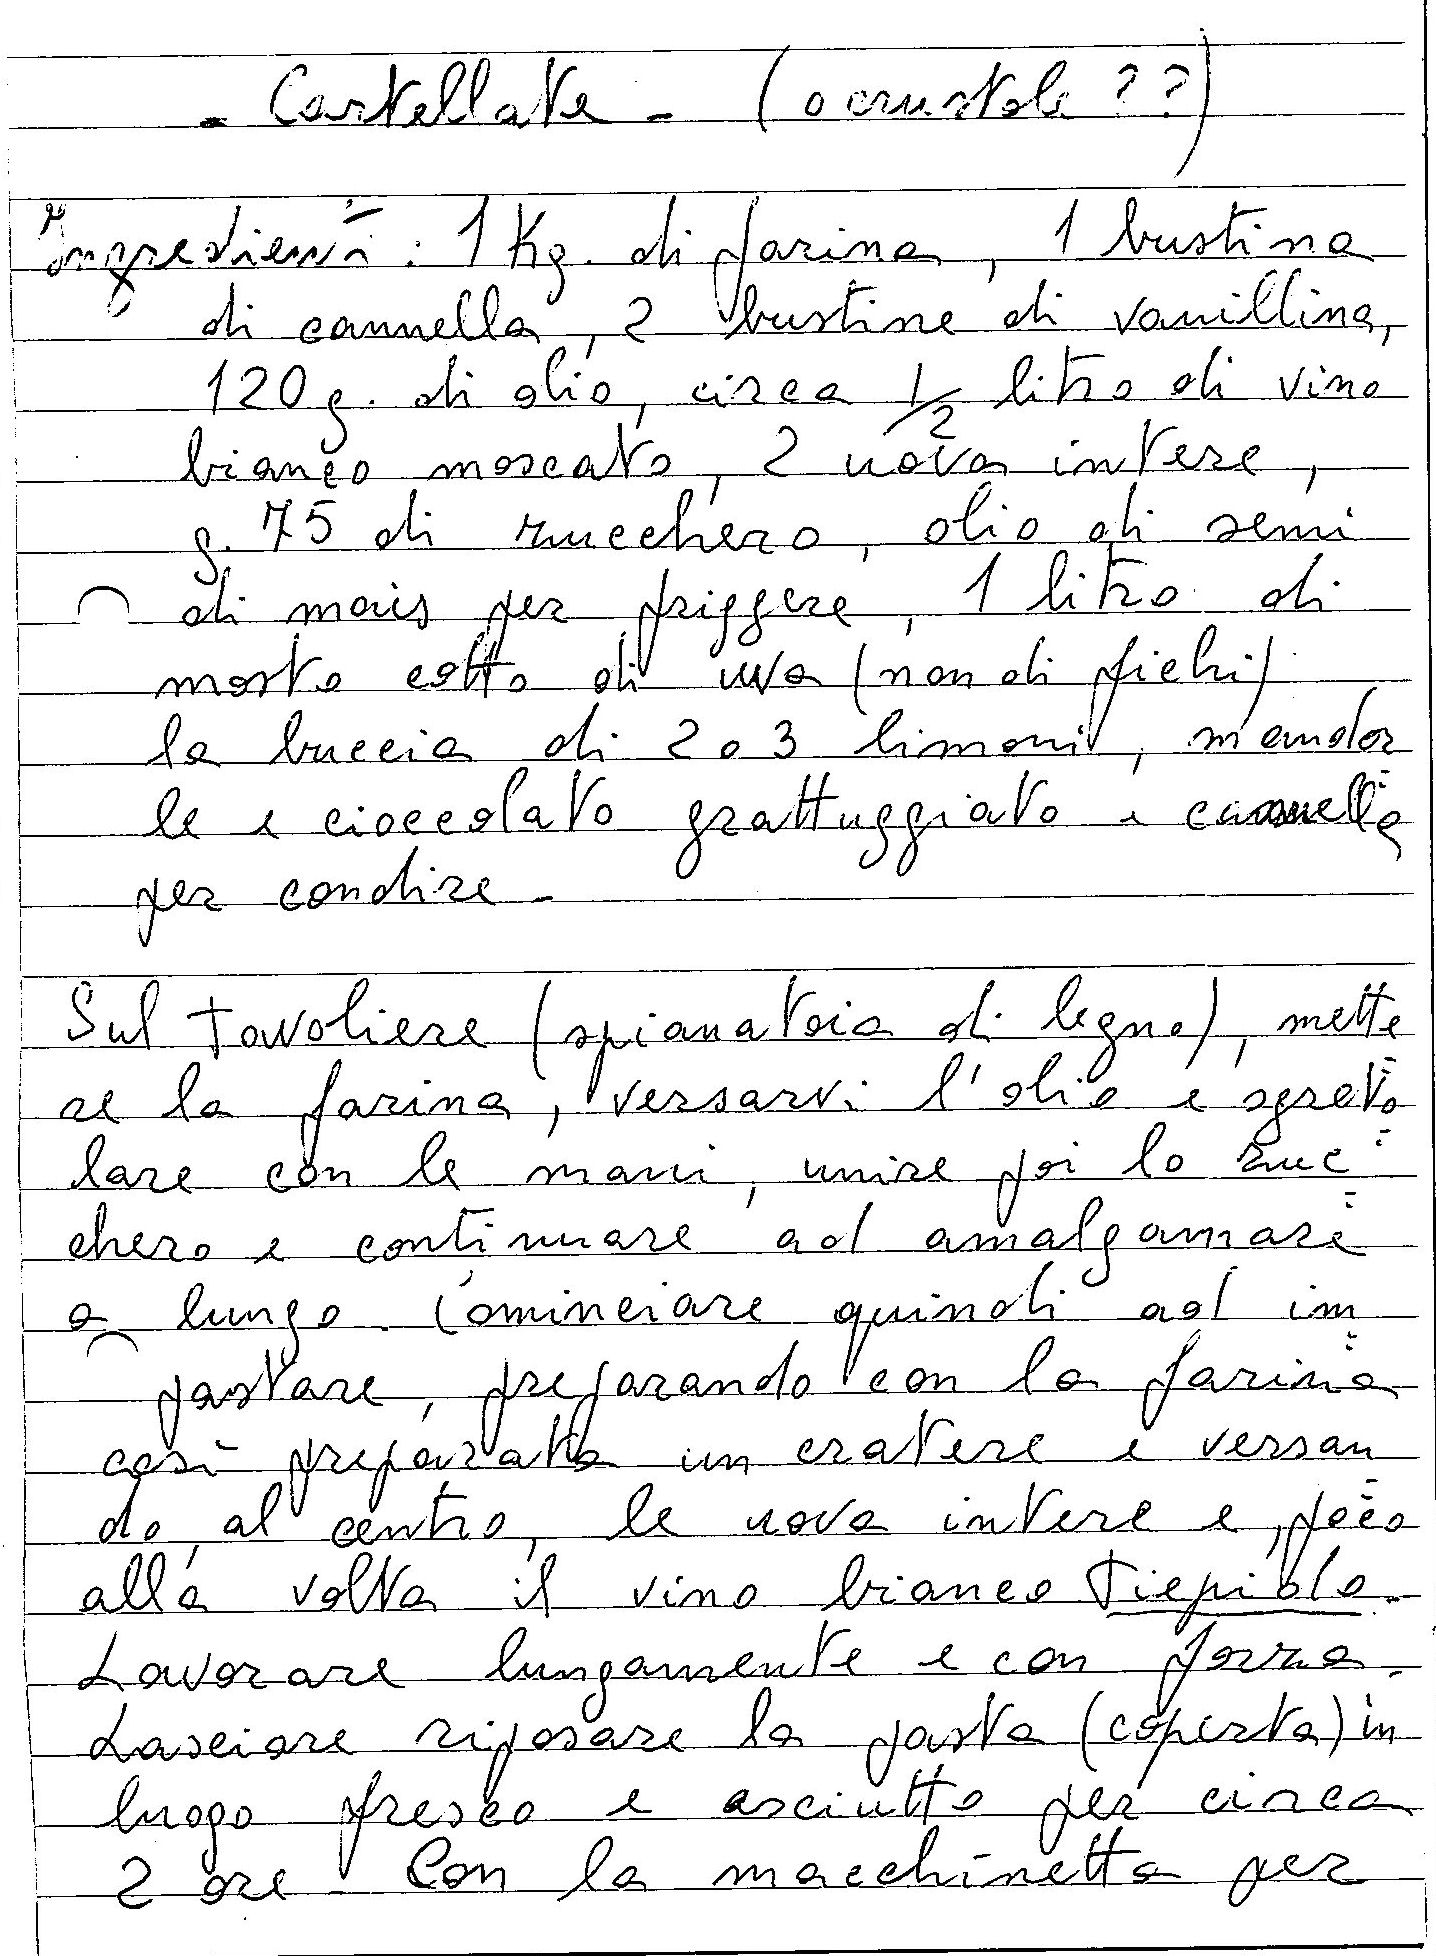 - Cartellate - (o crustole ??)
Ingredienti: 1 Kg. di farina, 1 bustina
di cannella, 2 bustine di vanillina,
120 g. di olio, circa 1/2 litro di vino
bianco moscato, 2 uova intere,
g. 75 di zucchero, olio di semi
di mais per friggere, 1 litro di
mosto cotto di uva (non di fichi)
la buccia di 2 o 3 limoni, mandor
le e cioccolato grattuggiato e cannella
per condire -
Sul tavoliere (spianatoia di legno), mette
re la farina, versarvi l'olio e sgreto
lare con le mani, unire poi lo zuc
chero e continuare ad amalgamare
a lungo. Cominciare quindi ad im
pastare, preparando con la farina
così preparata un cratere e versan
do, al centro, le uova intere e, poco
alla volta il vino bianco tiepido.
Lavorare lungamente e con forza.
Lasciare riposare la pasta (coperta) in
luogo fresco e asciutto per circa
2 ore. Con la macchinetta per